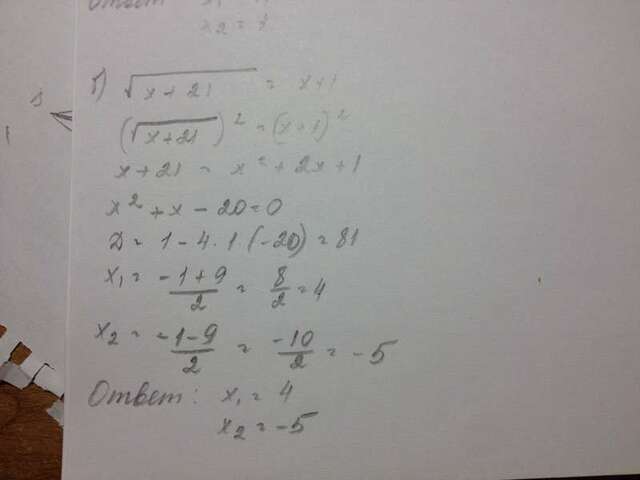 Ответ
x₂ =
б) √(x + 21) = x+1
(√(x+21))² = (x+1)²
x+21 = x² + 2x+1
x² + x − 20 = 0
D = 1 − 4 · 1 · (−20) = 81
x₁ = (−1+9)/2 = 8/2 = 4
x₂ = (−1−9)/2 = −10/2 = −5
Ответ: x₁ = 4
x₂ = −5